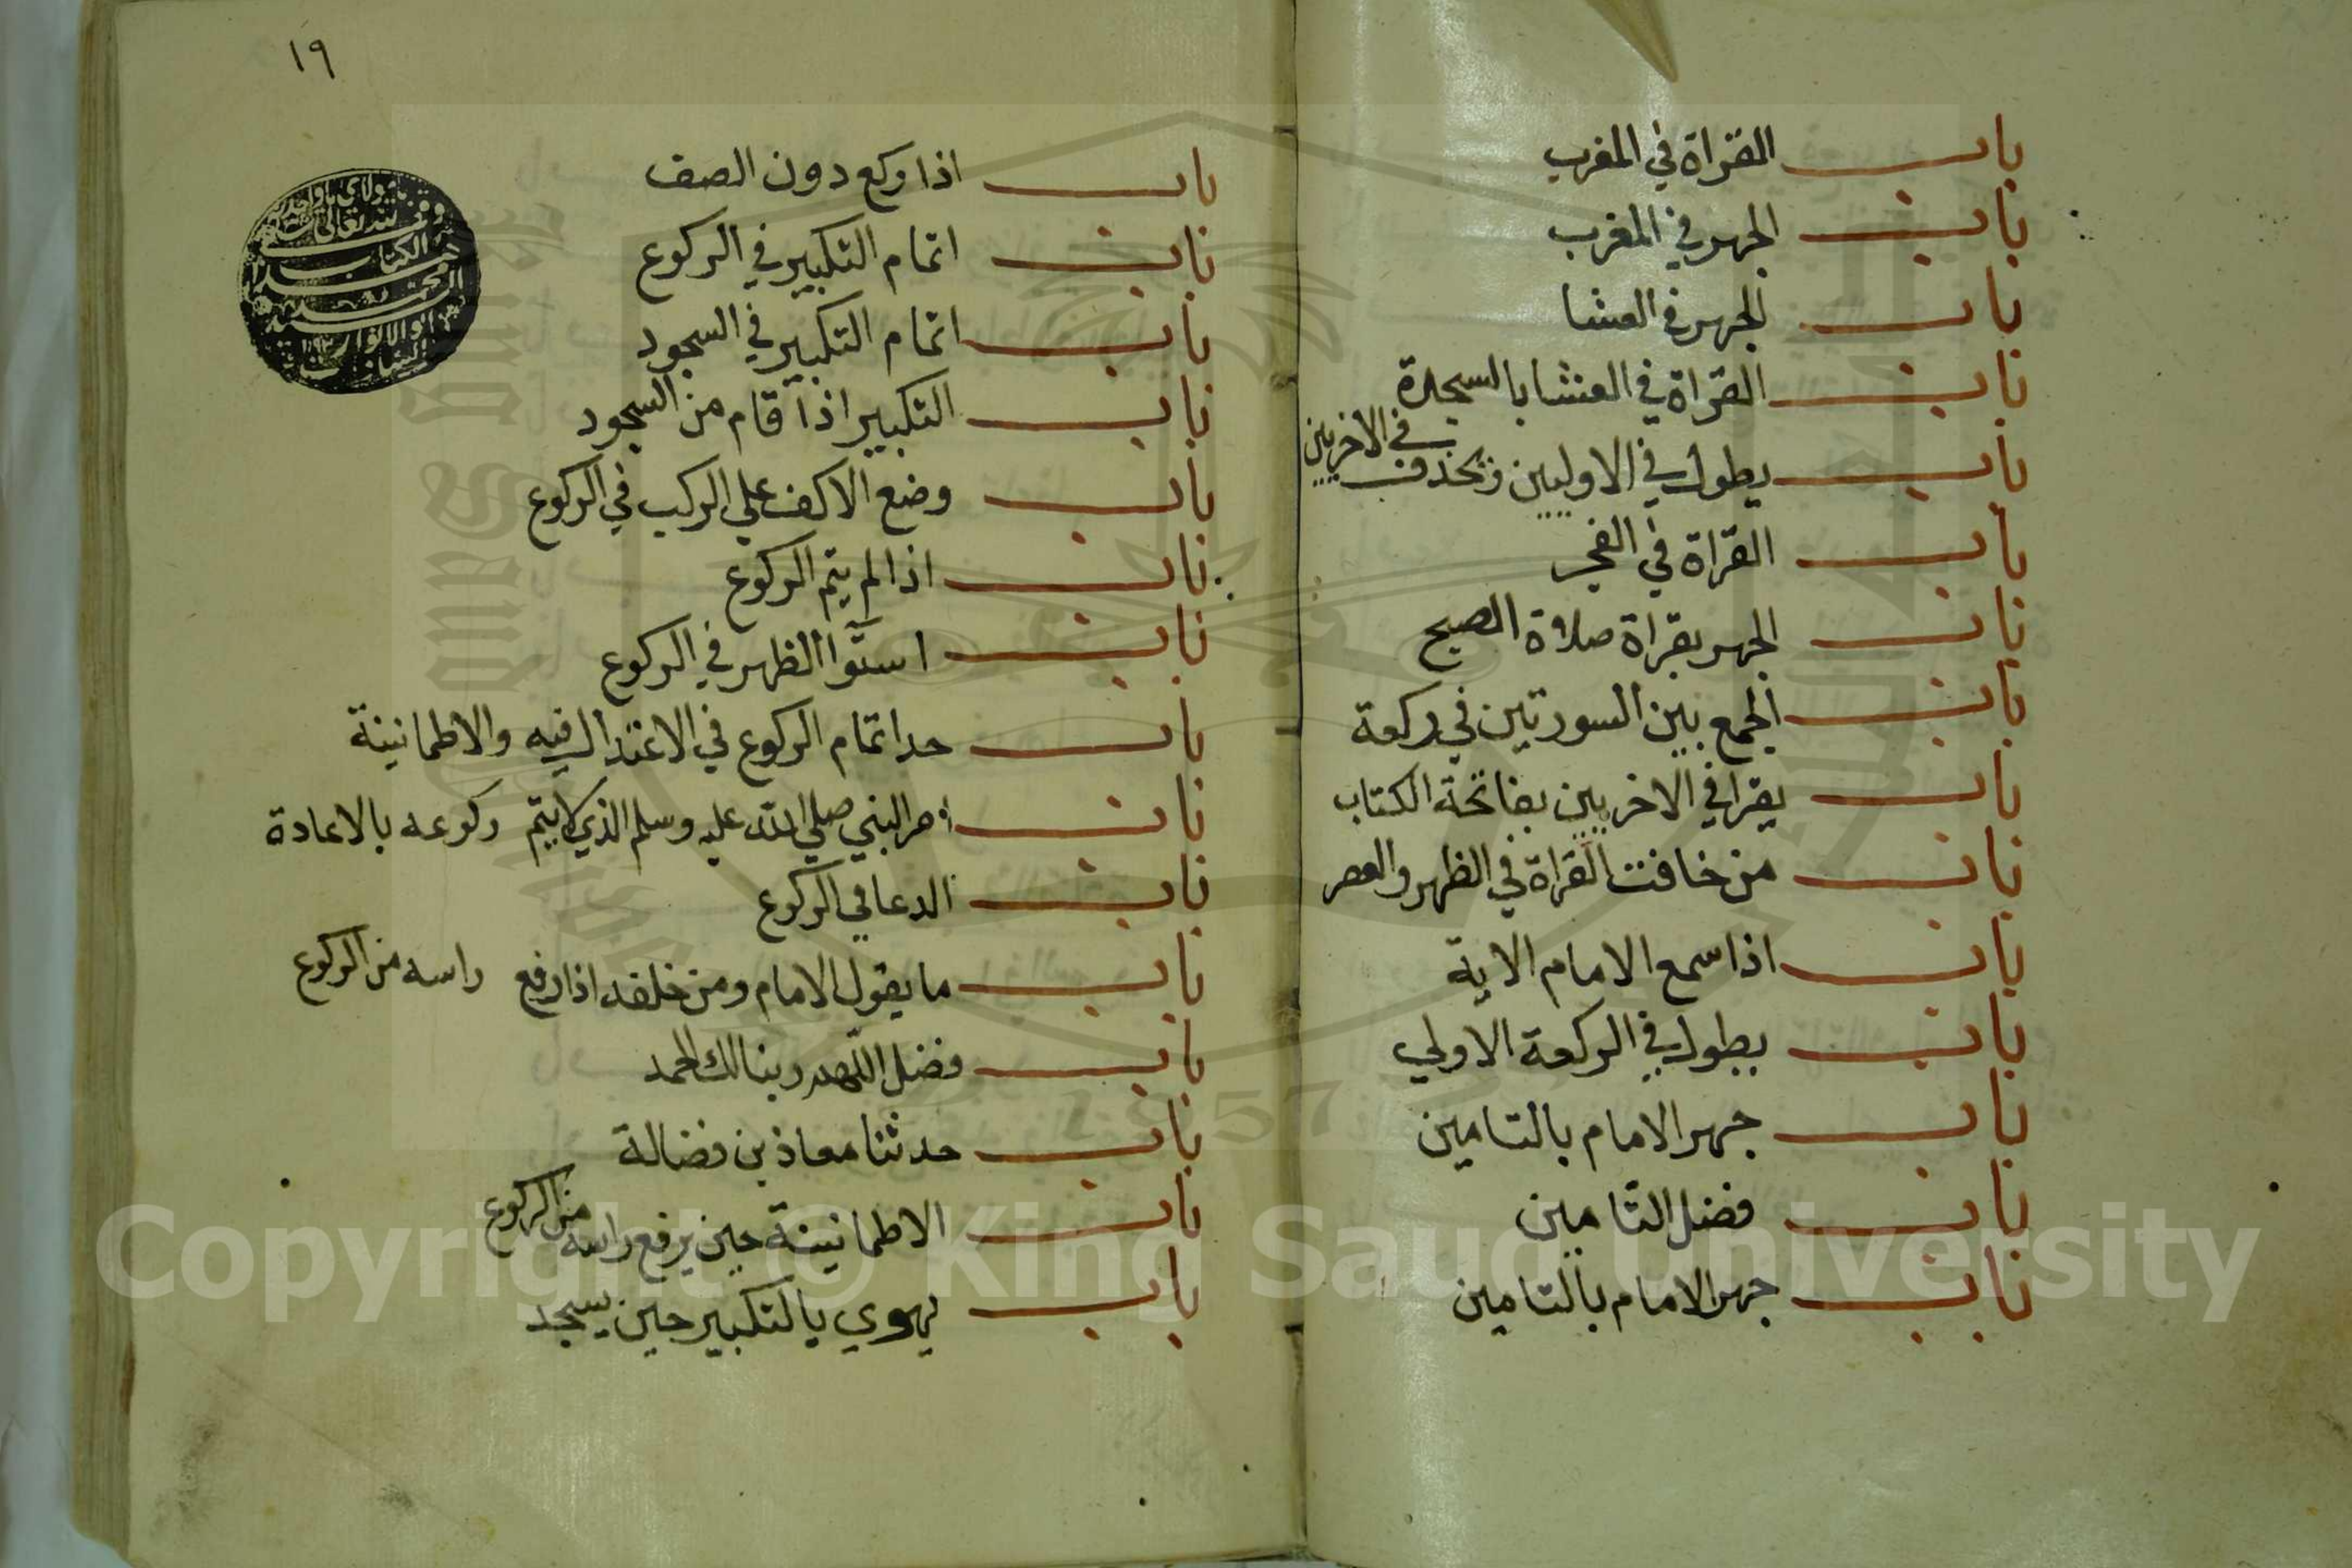 باب القراة في المغرب
باب الجهر في المغرب
باب الجهر في العشا
باب القراة في العشا بالسجدة
باب يطول في الاوليين ويحذف في الاخريين
باب القراة في الفجر
باب الجهر بقراة صلاة الصبح
باب الجمع بين السورتين في ركعة
باب يقرا في الاخريين بفاتحة الكتاب
باب من خافت القراة في الظهر والعصر
باب اذا سمع الامام الاية
باب يطول في الركعة الاولي
باب جهر الامام بالتامين
باب فضل التامين
باب جهر الامام بالتامين
١٩
باب اذا ركع دون الصف
باب اتمام التكبير في الركوع
باب اتمام التكبير في السجود
باب التكبير اذا قام من السجود
باب وضع الاكف علي الركب في الركوع
باب اذا لم يتم الركوع
باب استوا الظهر في الركوع
باب حد اتمام الركوع في الاعتدال فيه والاطمانينة
باب امر النبي صلي الله عليه وسلم الذي لا يتم ركوعه بالاعادة
باب الدعا في الركوع
باب ما يقول الامام ومن خلفه اذا رفع راسه من الركوع
باب فضل اللهم ربنا لك الحمد
باب حدثنا معاذ بن فضالة
باب الاطمانينة حين يرفع راسه من الركوع
باب يهوي بالتكبير حين يسجد
لله تعالى
الكتاب
1957
Copyright © King Saud University